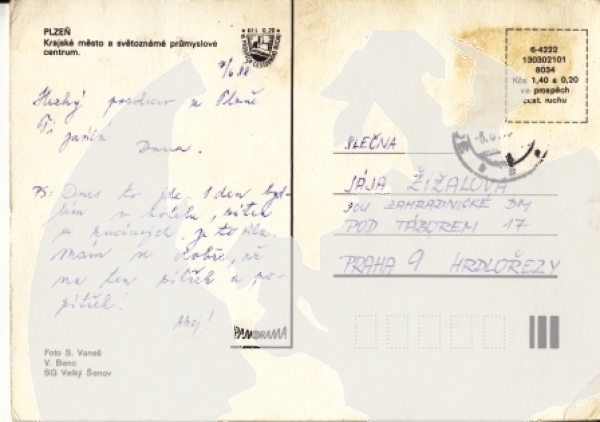 PLZEŇ
Krajské město a světoznámé průmyslové
centrum.
Kčs 0,20
7/6 88
Hezký pozdrav z Plzně
Ti zasílá
Dana.
PS: Dnes to jde, 1 den byd-
lím v hotelu, zítra
u známých. Je to síla
mám se dobře, až
na ten pitíček a po-
pitíček!
Ahoj!
PANORAMA
Foto S. Vaneš
V. Benc
SG Velký Šenov
6-4222
130302101
8034
Kčs 1,40 a 0,20
ve prospěch
cest. ruchu
-8.6.
SLEČNA
JÁJA ŽÍŽALOVÁ
SOU ZAHRADNICKÉ DM
POD TÁBOREM 17
PRAHA 9 HRDLOŘEZY